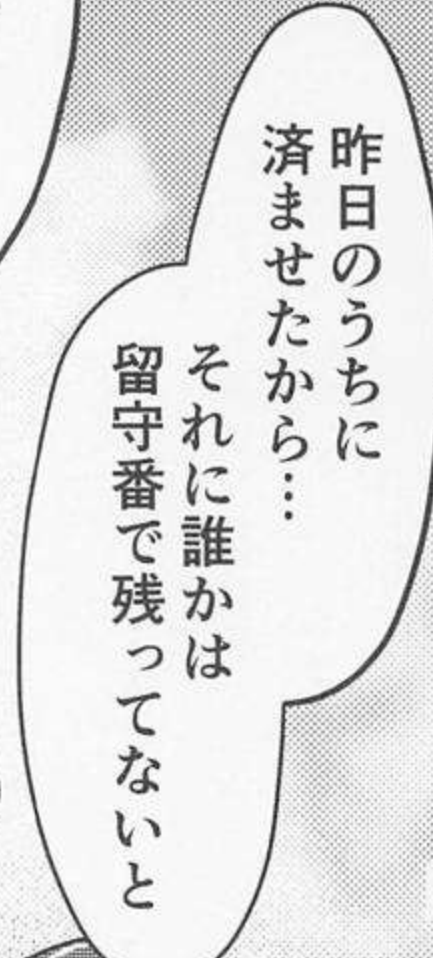 昨日のうちに
済ませたから…
それに誰かは
留守番で残ってないと